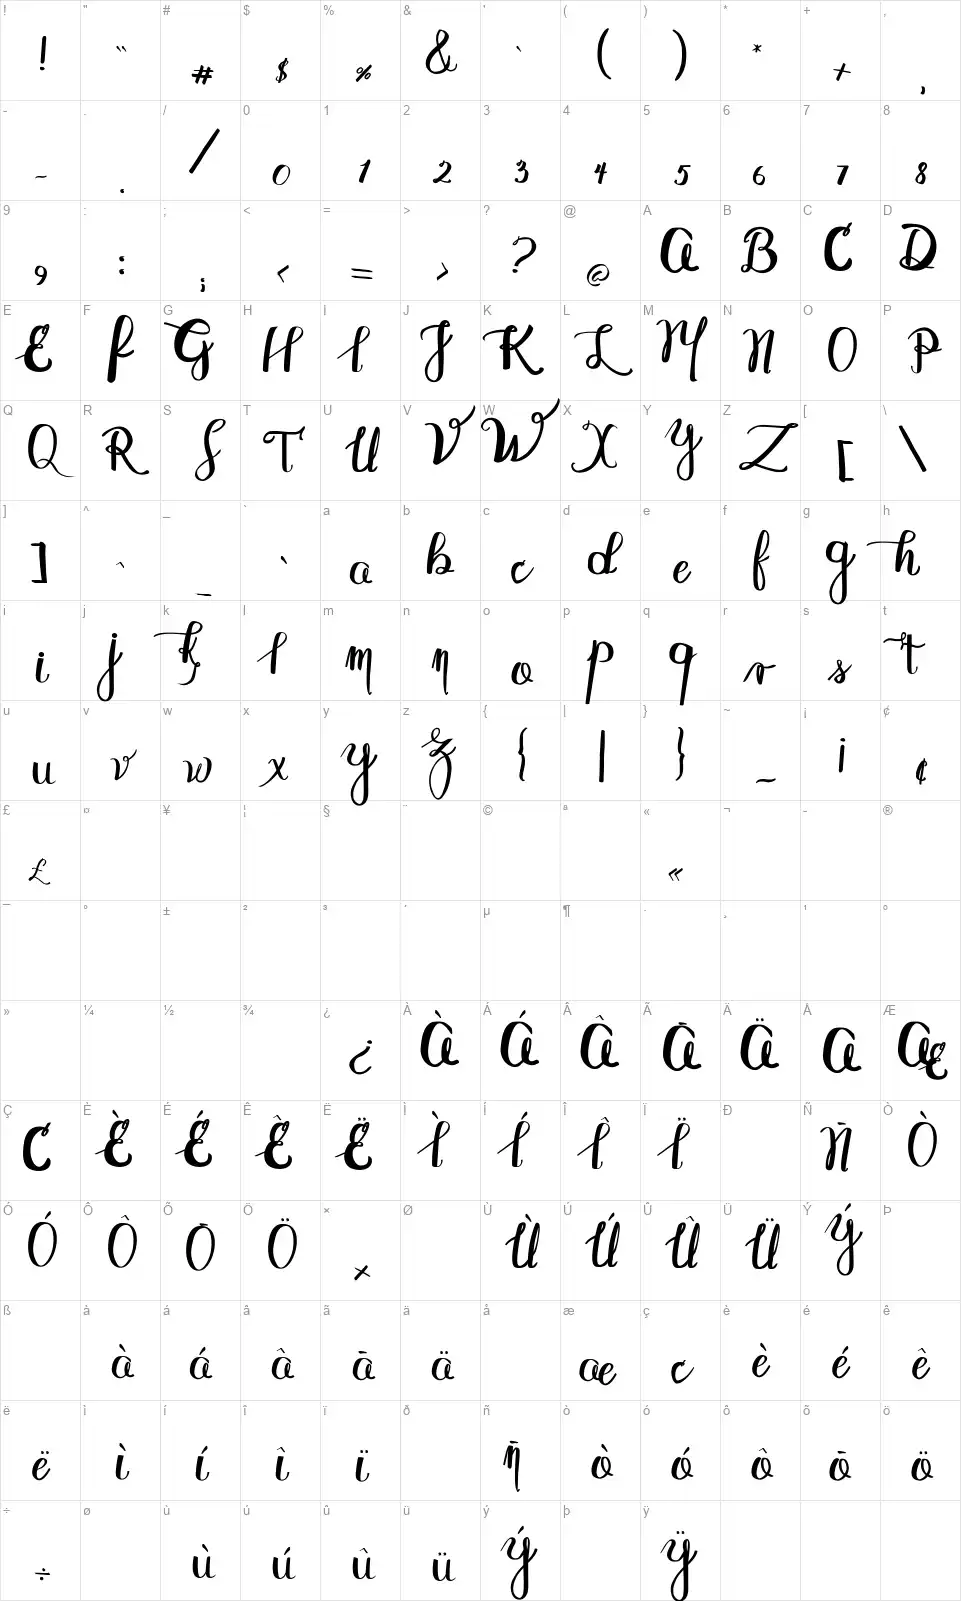 ! " # $ % & ' ( ) * + ,
! " # $ % & ' ( ) * + ,
- . / 0 1 2 3 4 5 6 7 8
- . / 0 1 2 3 4 5 6 7 8
9 : ; < = > ? @ A B C D
9 : ; < = > ? @ A B C D
E F G H I J K L M N O P
E F G H I J K L M N O P
Q R S T U V W X Y Z [ \
Q R S T U V W X Y Z [ \
] ^ _ ` a b c d e f g h
] ^ _ ` a b c d e f g h
i j k l m n o p q r s t
i j k l m n o p q r s t
u v w x y z { | } ~ ¡ ¢
u v w x y z { | } ~ ¡ ¢
£ ¤ ¥ ¦ § ¨ © ª « ¬ - ®
£ «
¯ ° ± ² ³ ´ µ ¶ · ¸ ¹ º
» ¼ ½ ¾ ¿ À Á Â Ã Ä Å Æ
¿ À Á Â Ã Ä A Æ
Ç È É Ê Ë Ì Í Î Ï Ð Ñ Ò
C È É Ê Ë Ì Í Î Ï Ñ Ò
Ó Ô Õ Ö × Ø Ù Ú Û Ü Ý Þ
Ó Ô Õ Ö × Ù Ú Û Ü Ý
ß à á â ã ä å æ ç è é ê
à á â ã ä æ c è é ê
ë ì í î ï ð ñ ò ó ô õ ö
ë ì í î ï ñ ò ó ô õ ö
÷ ø ù ú û ü ý þ ÿ
÷ ù ú û ü ý ÿ